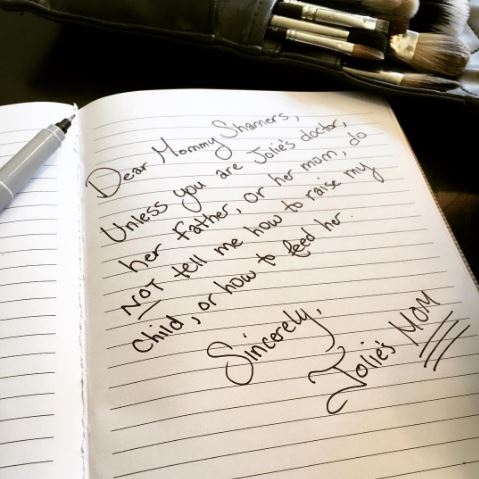 Dear Mommy Shamers,
Unless you are Jolie's doctor,
her Father, or her mom, do
NOT tell me how to raise my
child, or how to feed her.
Sincerely,
Jolie's MOM